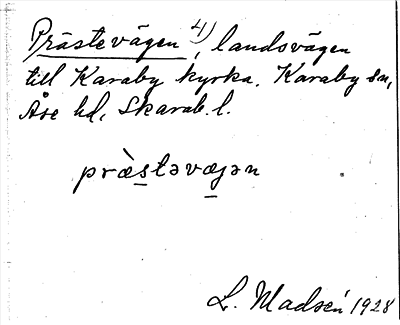 Prästevägen 4), landsvägen
till Karaby kyrka. Karaby sn,
Åse hd, Skarab. l.
præ̀s̲təvæ̲jən
L. Madsén 1928